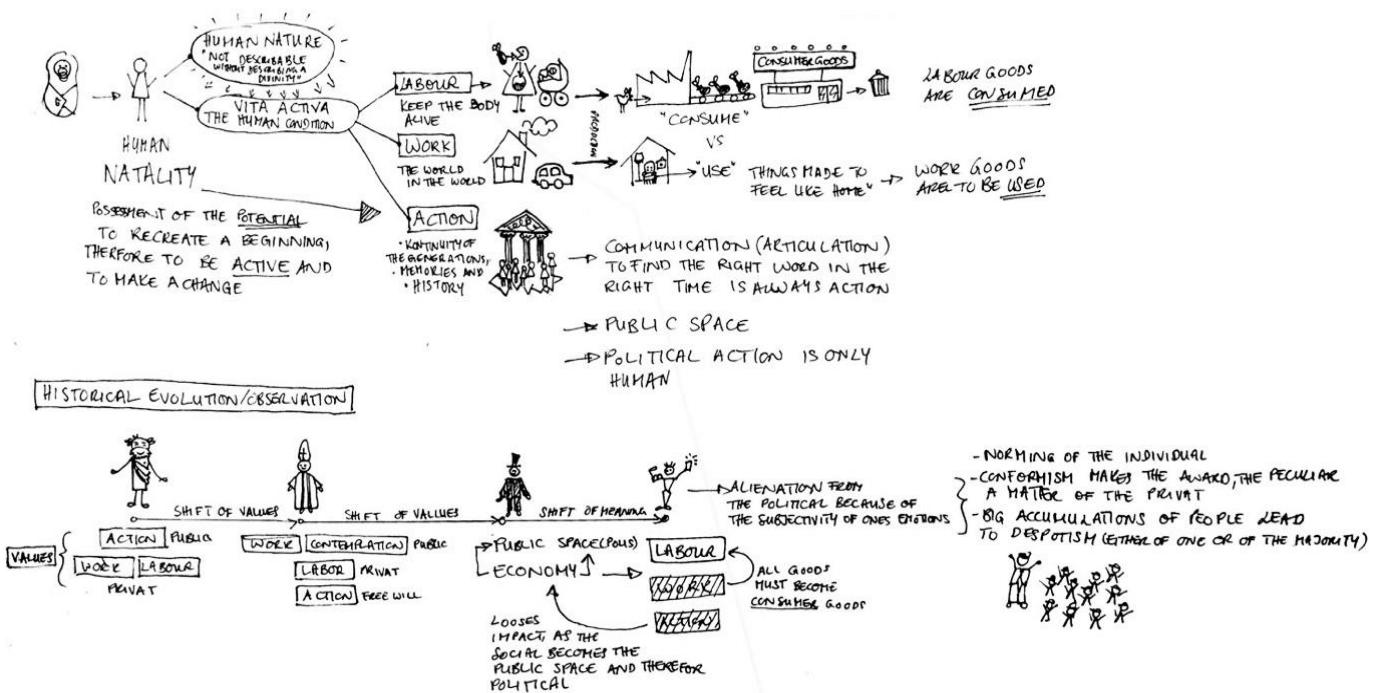 HUMAN NATURE
"NOT DESCRIBABLE
WITHOUT DESCRIBING A
DIVINITY"
VITA ACTIVA
THE HUMAN CONDITION
HUMAN
NATALITY
POSSESSMENT OF THE POTENTIAL
TO RECREATE A BEGINNING,
THERFORE TO BE ACTIVE AND
TO MAKE A CHANGE
LABOUR
KEEP THE BODY
ALIVE
WORK
THE WORLD
IN THE WORLD
ACTION
• KONTINUITY OF
THE GENERATIONS,
• MEMORIES AND
• HISTORY
CONSUMER GOODS
"CONSUME"
VS
"USE" THINGS MADE TO
FEEL LIKE HOME"
LABOUR GOODS
ARE CONSUMED
WORK GOODS
ARE TO BE USED
COMMUNICATION (ARTICULATION)
TO FIND THE RIGHT WORD IN THE
RIGHT TIME IS ALWAYS ACTION
PUBLIC SPACE
POLITICAL ACTION IS ONLY
HUMAN
HISTORICAL EVOLUTION/OBSERVATION
SHIFT OF VALUES
SHIFT OF VALUES
SHIFT OF MEANING
VALUES
ACTION PUBLIC
WORK LABOUR
PRIVAT
WORK CONTEMPLATION PUBLIC
LABOR PRIVAT
ACTION FREE WILL
PUBLIC SPACE (POLIS)
ECONOMY
LOOSES
IMPACT, AS THE
SOCIAL BECOMES THE
PUBLIC SPACE AND THEREFOR
POLITICAL
LABOUR
WORK
ACTION
ALL GOODS
MUST BECOME
CONSUMER GOODS
ALIENATION FROM
THE POLITICAL BECAUSE OF
THE SUBJECTIVITY OF ONES EMOTIONS
- NORMING OF THE INDIVIDUAL
- CONFORMISM MAKES THE AWARD, THE PECULIAR
A MATTER OF THE PRIVAT
- BIG ACCUMULATIONS OF PEOPLE LEAD
TO DESPOTISM (EITHER OF ONE OR OF THE MAJORITY)